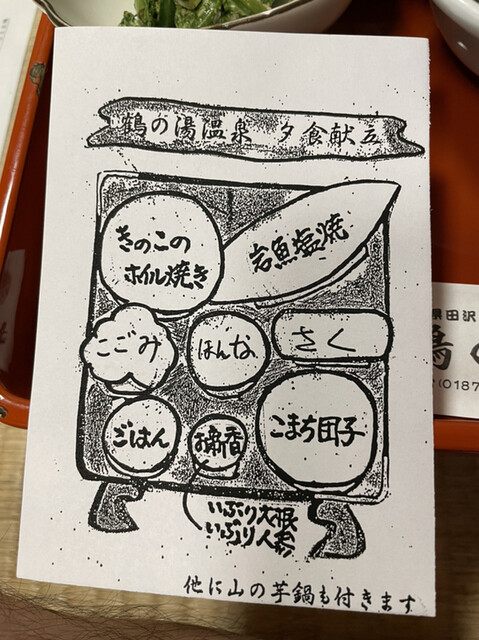 鶴の湯温泉 夕食献立
きのこの
ホイル焼き
岩魚塩焼
こごみ
ほんな
さく
ごはん
お新香
こまち団子
いぶり大根
いぶり人参
他に山の芋鍋も付きます
田沢
(0187